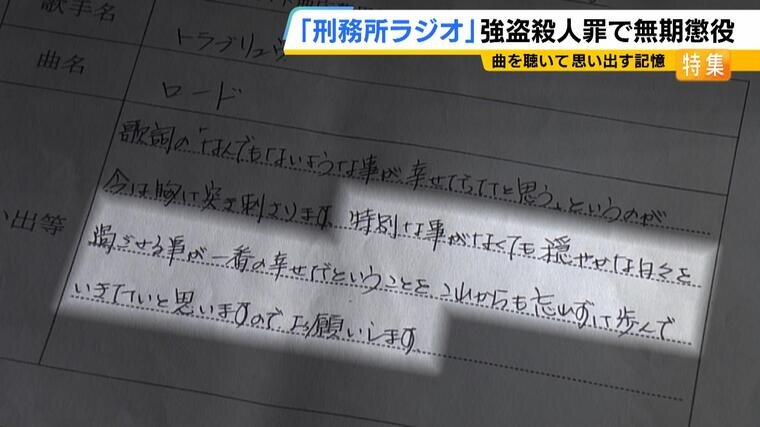 「刑務所ラジオ」強盗殺人罪で無期懲役
曲を聴いて思い出す記憶
特集
歌手名
トラブリュウ
曲名
ロード
い出等
歌詞の「なんでもないような事が幸せだったと思う」というのが
今は胸に突き刺さります 特別な事がなくても穏やかな日々を
過ごせる事が一番の幸せだということをこれからも忘れずに歩んで
いきたいと思いますのでお願いします